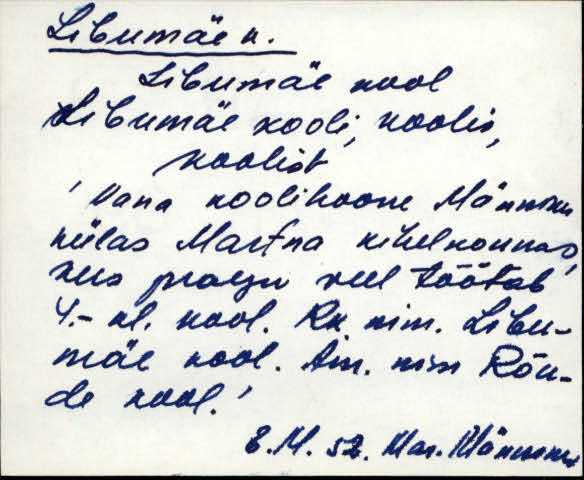 Libumäe k.
Libumäe kool
Libumäe kooli, koolis,
koolist
'Vana koolihoone Männiku
külas Martna kihelkonnas,
kus praegu veel töötab
4.-kl. kool. Rk nim. Libu-
mäe kool. Am. nim Rõu-
de kool.'
E.M. 52. Mar. Männiku